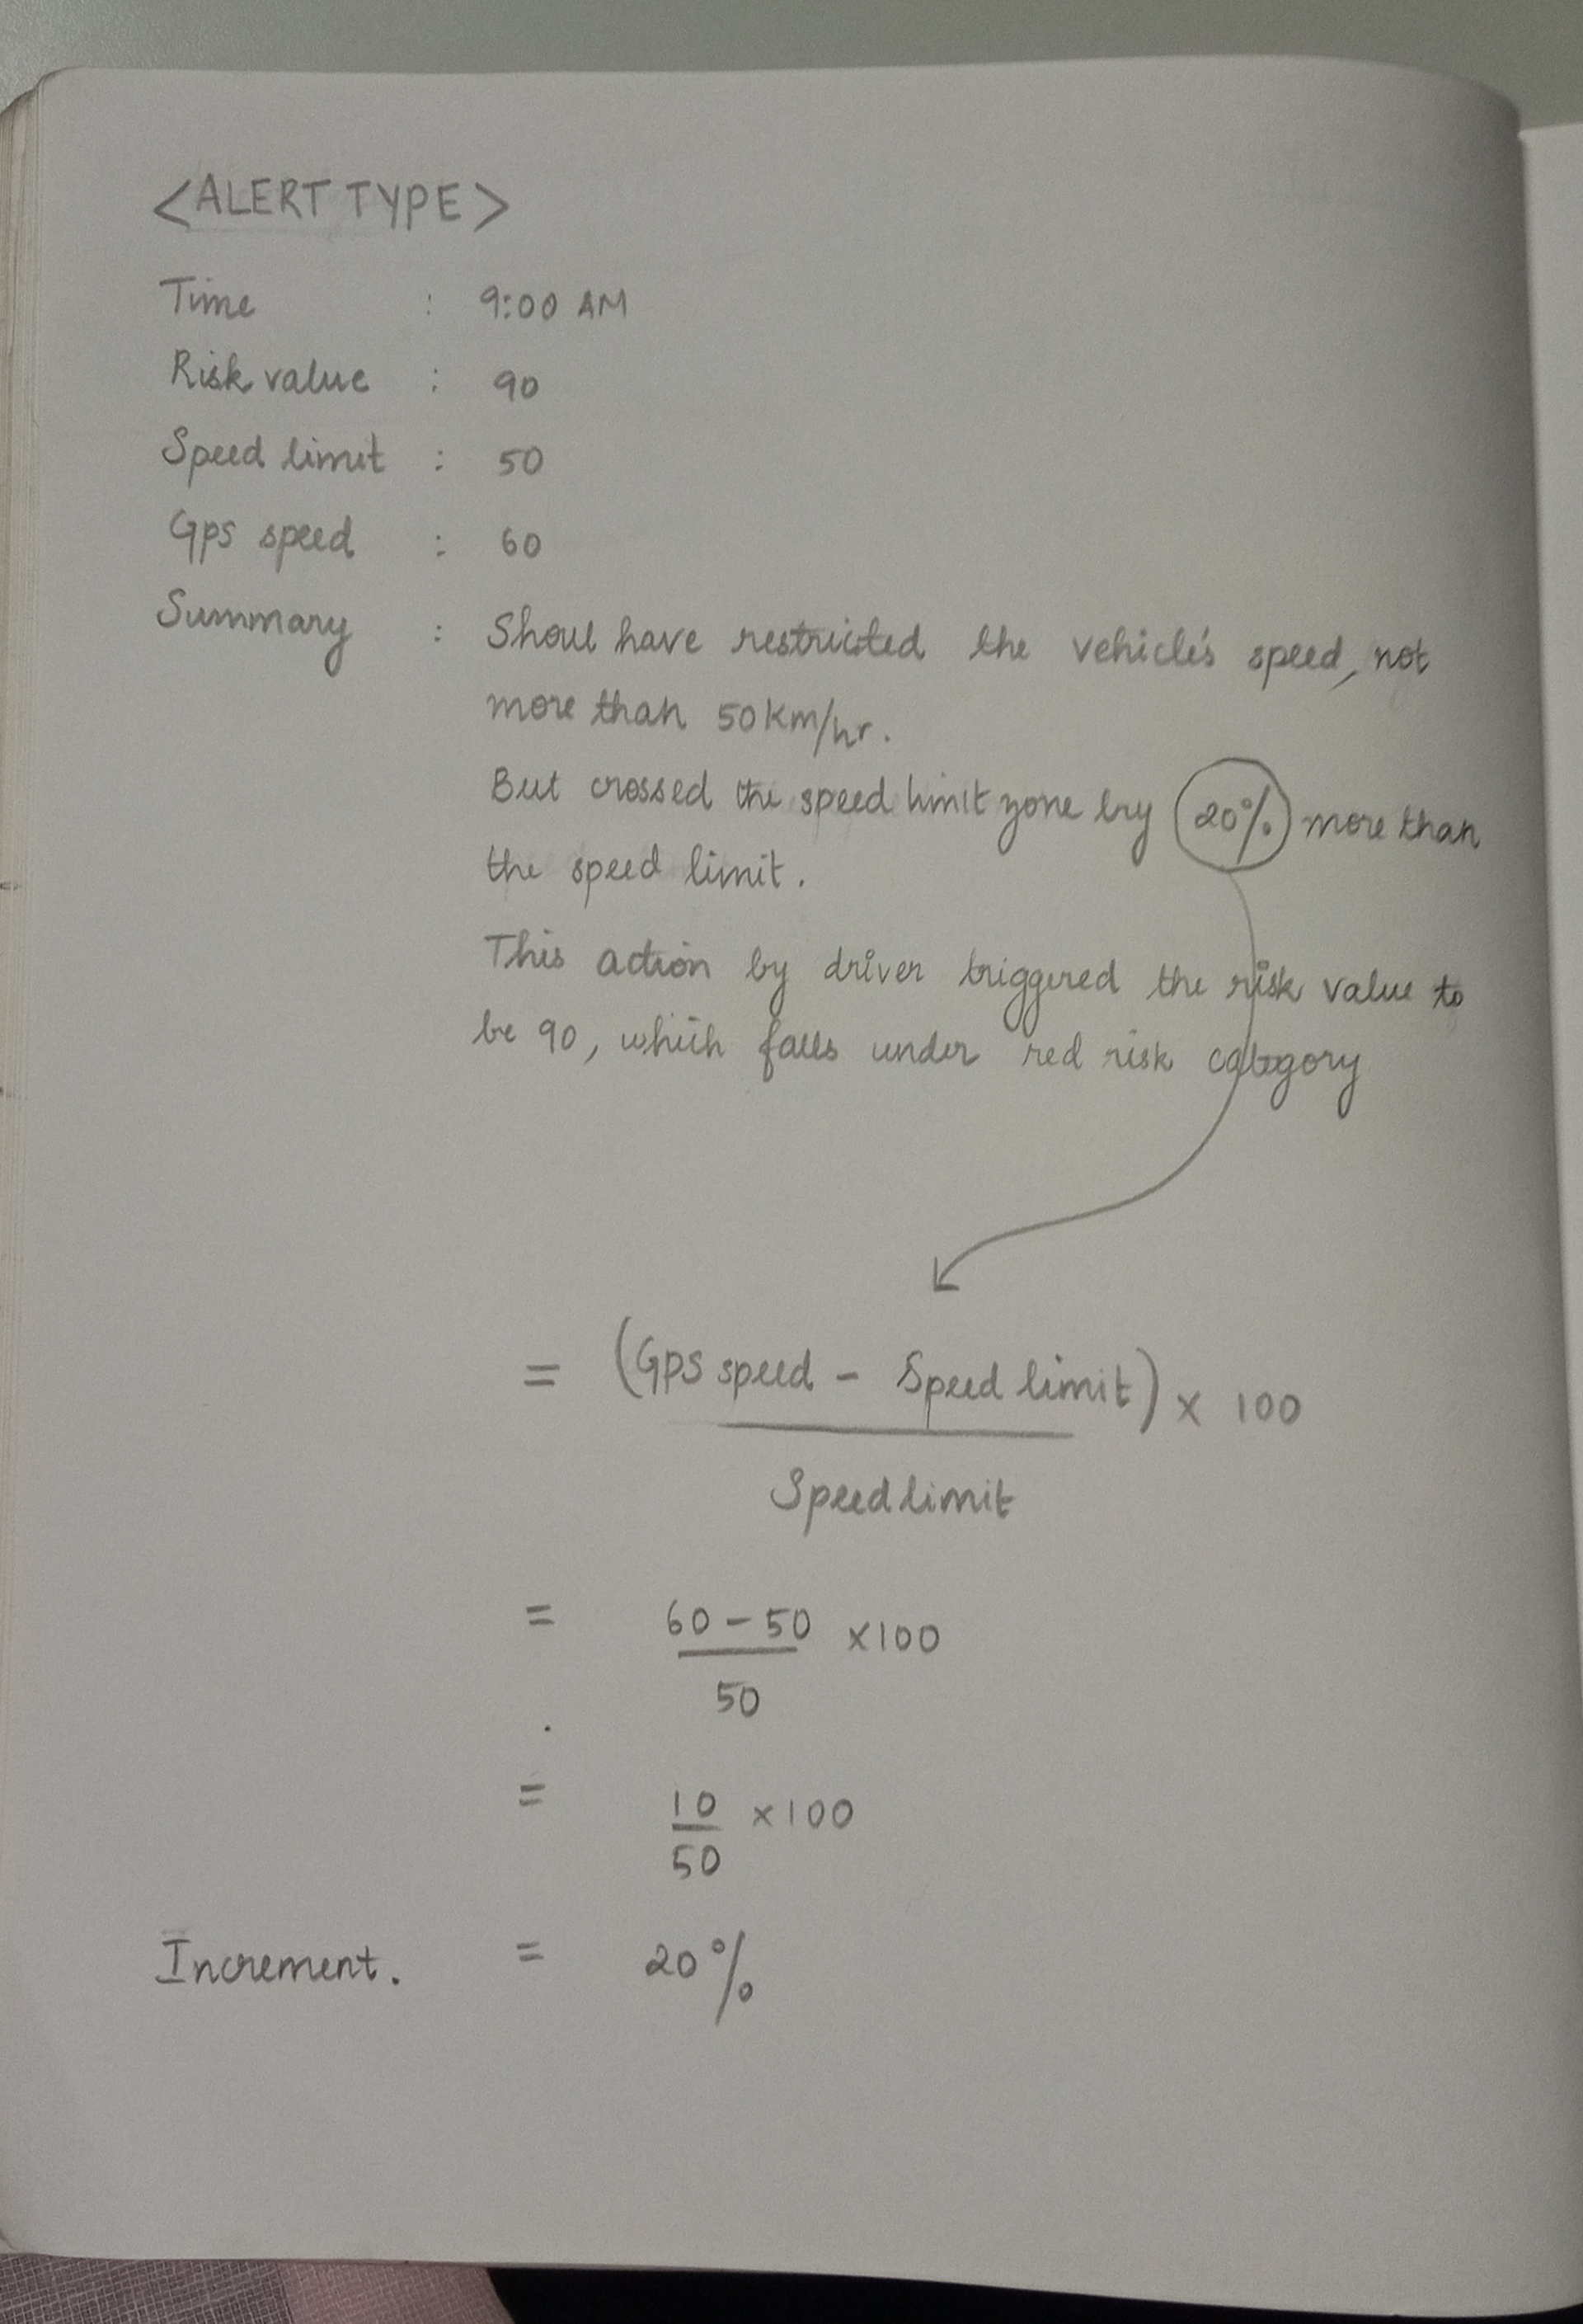 <ALERT TYPE>
Time : 9:00 AM
Risk value : 90
Speed limit : 50
Gps speed : 60
Summary : Shoul have restricted the vehicle's speed, not
more than 50 km/hr.
But crossed the speed limit zone by 20% more than
the speed limit.
This action by driver triggered the risk value to
be 90, which falls under red risk category
= (GPS speed - Speed limit) x 100
Speed limit
= 60 - 50 x 100
50
= 10 x 100
50
Increment. = 20%